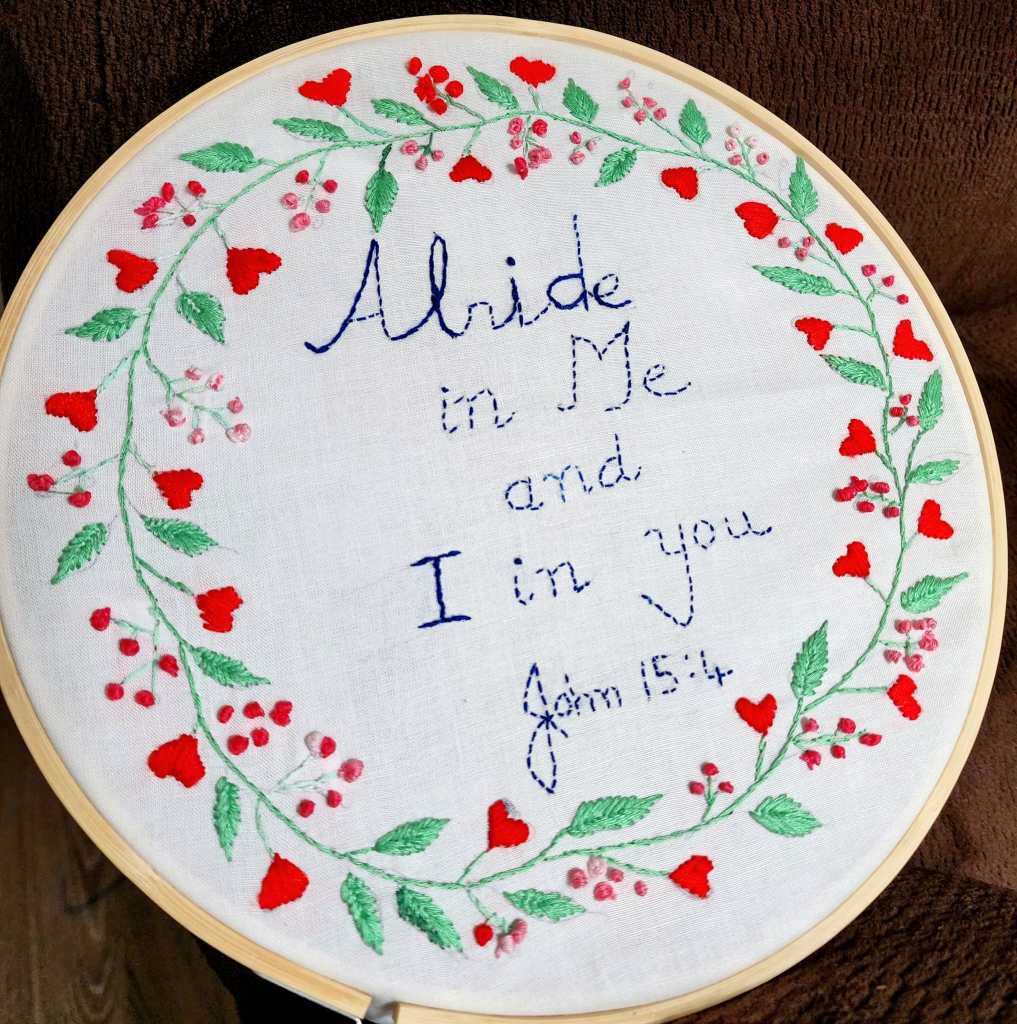 Abide
in Me
and
I in you
John 15:4